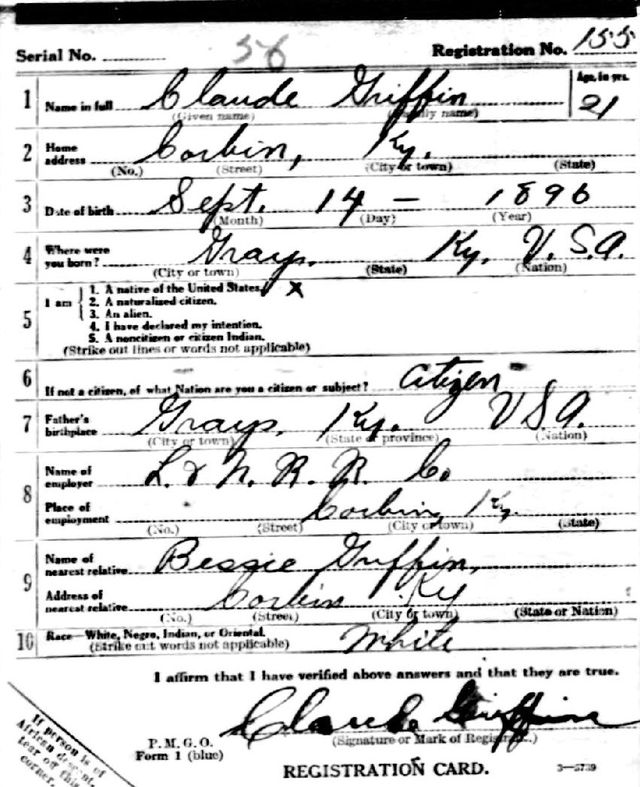 Serial No. 56 Registration No. 155
1 Name in full Claude Griffin Age, in yrs. 21
(Given name) (Family name)
2 Home address Corbin, Ky.
(No.) (Street) (City or town) (State)
3 Date of birth Sept. 14 - 1896
(Month) (Day) (Year)
4 Where were you born? Grays. Ky. U.S.A.
(City or town) (State) (Nation)
5 I am
1. A native of the United States. x
2. A naturalized citizen.
3. An alien.
4. I have declared my intention.
5. A noncitizen or citizen Indian.
(Strike out lines or words not applicable)
6 If not a citizen, of what Nation are you a citizen or subject? Citizen
7 Father's birthplace Grays. Ky. U S A.
(City or town) (State or province) (Nation)
8 Name of employer L. & N. R. R. Co
Place of employment Corbin, Ky
(No.) (Street) (City or town) (State)
9 Name of nearest relative Bessie Griffin,
Address of nearest relative Corbin Ky
(No.) (Street) (City or town) (State or Nation)
10 Race—White, Negro, Indian, or Oriental. White
(Strike out words not applicable)
I affirm that I have verified above answers and that they are true.
Claude Griffin
(Signature or Mark of Registrant.)
P. M. G. O.
Form 1 (blue)
REGISTRATION CARD.
3—5739
If person is of
African descent,
tear off this
corner.